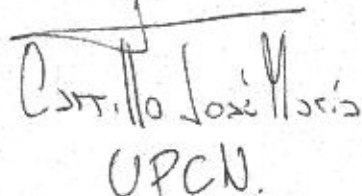 Carrillo José María
UPCN.